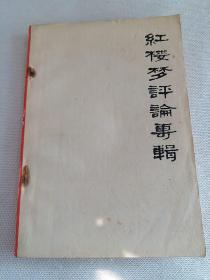 红楼梦評論專輯